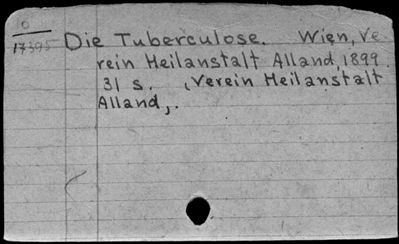 0
17395 Die Tuberculose. Wien, Ve
rein Heilanstalt Alland, 1899.
31 s. , Verein Heilanstalt
Alland,.